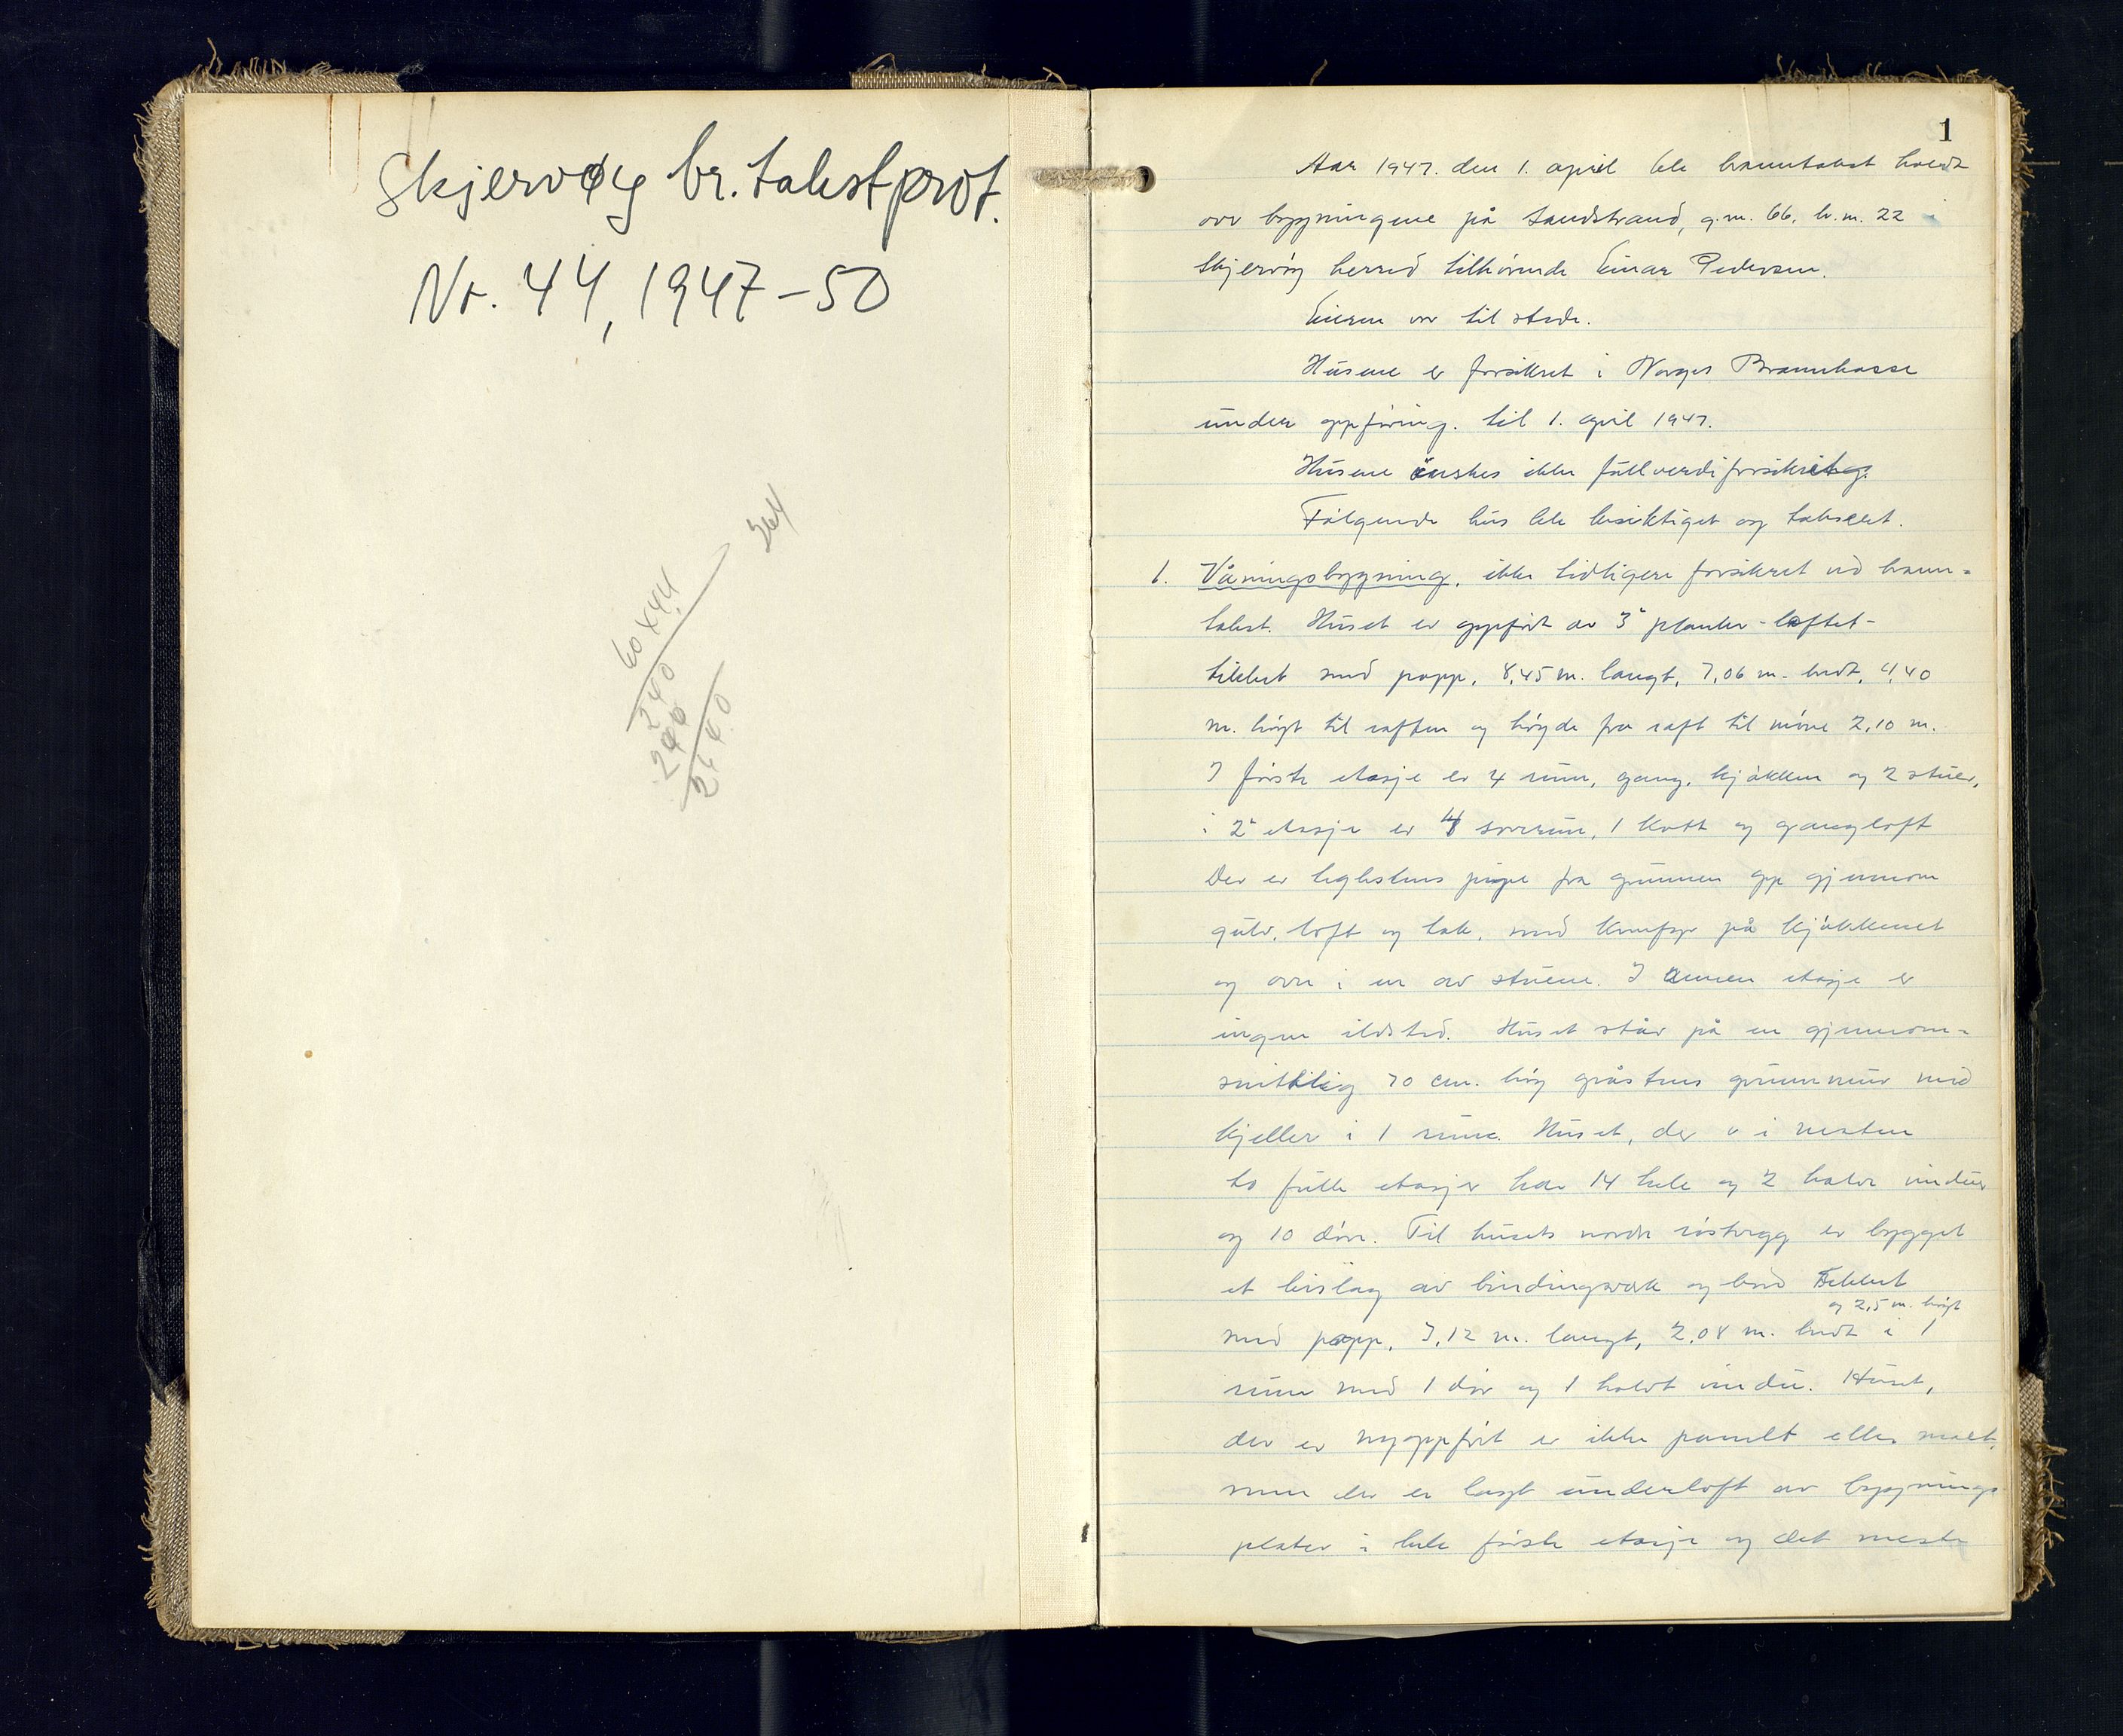 Skjervøy br.takstprot.
Nr. 44, 1947-50
264
60 x 44
240
240
2640
1
Aar 1947. den 1. april ble branntakst holdt
over bygningene på Sandstrand, g.nr. 66, br.nr. 22 i
Skjervøy herred tilhørende Einar Pedersen.
Eieren var til stede.
Husene er forsikret i Norges Brannkasse
under oppføring. til 1. april 1947.
Husene ønskes ikke fullverdiforsikret.
Følgende hus ble besiktiget og taksert.
1. Våningsbygning, ikke tidligere forsikret ved brann=
takst. Huset er oppført av 3" planker - laftet -
tekket med papp, 8,45 m. langt, 7,06 m. bredt, 4,40
m. høgt til raften og høyde fra raft til møne 2,10 m.
I første etasje er 4 rum, gang, kjøkken og 2 stuer,
i 2" etasje er 4 soverum, 1 kott og gangloft
Der er teglstens pipe fra grunnen opp gjennom
gulv, loft og tak, med komfyr på kjøkkenet
og ovn i en av stuene. I annen etasje er
ingen ildsted. Huset står på en gjennom=
snittlig 70 cm. høy gråstens grunnmur med
kjeller i 1 rum. Huset, der er i nesten
to fulle etasjer har 14 hele og 2 halve vinduer
og 10 dører. Til husets nordre røstvegg er bygget
et bislag av bindingsverk og bord tekket
og 2,5 m. høgt
med papp, 3,12 m. langt, 2,08 m. bredt i 1
rum med 1 dør og 1 halvt vindu. Huset,
der er nyoppført er ikke panelt eller malt,
men der er lagt underloft av bygnings
plater i hele første etasje og det meste